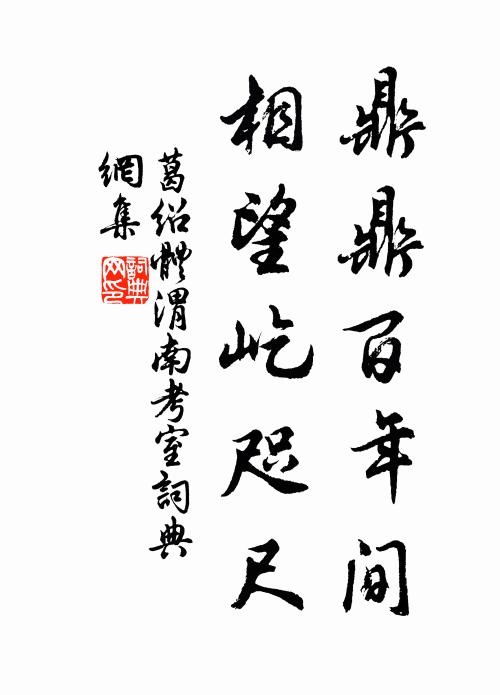 鼎鼎百年间
相望屹咫尺
葛绍體渭南考室詞典
網集
詞典網印